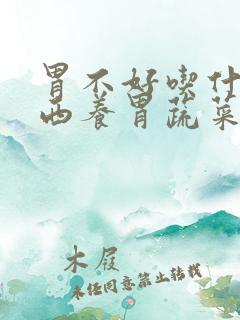 胃不好喫什
西养胃蔬菜
木屐
未经同意禁止转载